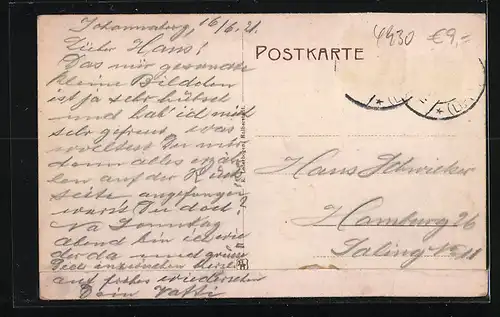 Johannaberg, 16/6. 21.
Lieber Hans!
Das mir gesandte
kleine Bildchen
ist ja sehr hübsch
und hab' ich mich
sehr gefreut, was
wolltest Du mir
denn alles erzäh-
len auf der Rück-
seite angefangen
war's Du doch
Na Sonntag
abend bin ich wie
der da und grüsse
Dich inzwischen herzl.
auf frohes Wiedersehen
Dein Vatti
POSTKARTE
4430 €9,-
Hans Schwieker
Hamburg 2/6